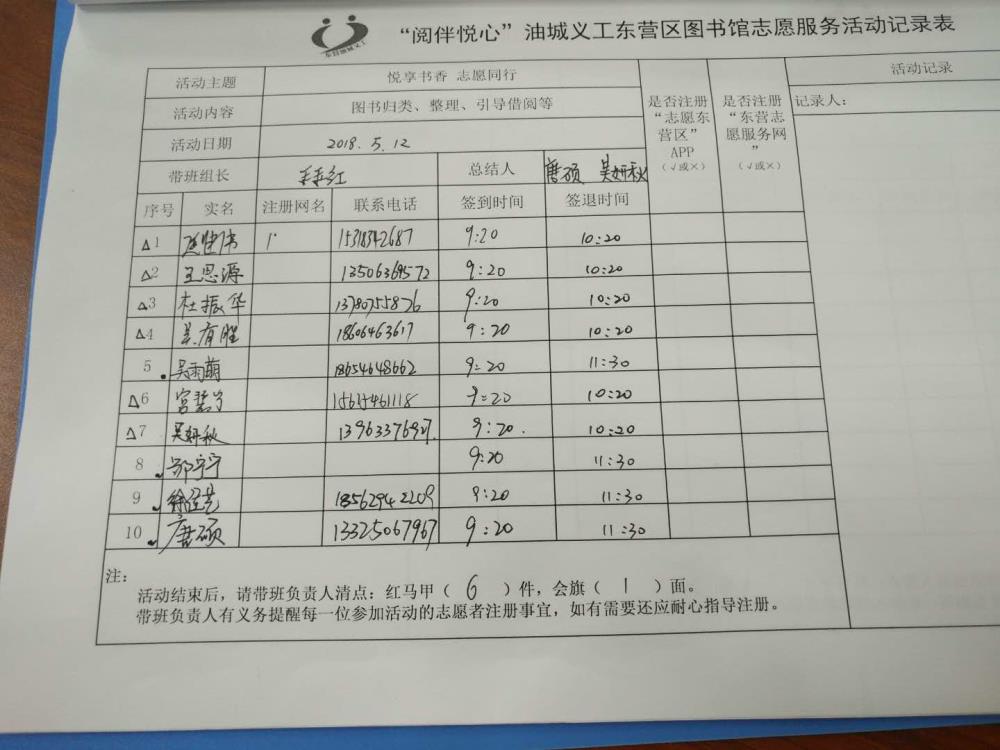 东营油城义工
“阅伴悦心”油城义工东营区图书馆志愿服务活动记录表
活动主题 悦享书香 志愿同行 是否注册“志愿东营区”APP（√或×） 是否注册“东营志愿服务网”（√或×） 活动记录
活动内容 图书归类、整理、引导借阅等 记录人：
活动日期 2018.5.12
带班组长 总结人 唐硕 吴妍秋
序号 实名 注册网名 联系电话 签到时间 签退时间
△1 15318342687 9:20 10:20
△2 王思源 13506369572 9:20 10:20
△3 杜振华 13780755876 9:20 10:20
△4 吴有胜 18606463617 9:20 10:20
5 吴雨萌 18654648662 9:20 11:30
△6 15615461118 9:20 10:20
△7 吴妍秋 1396337692 9:20 10:20
8 邹宇宁 9:20 11:30
9 18562942209 9:20 11:30
10 唐硕 13325067967 9:20 11:30
注：
活动结束后，请带班负责人清点：红马甲（ 6 ）件，会旗（ 1 ）面。
带班负责人有义务提醒每一位参加活动的志愿者注册事宜，如有需要还应耐心指导注册。